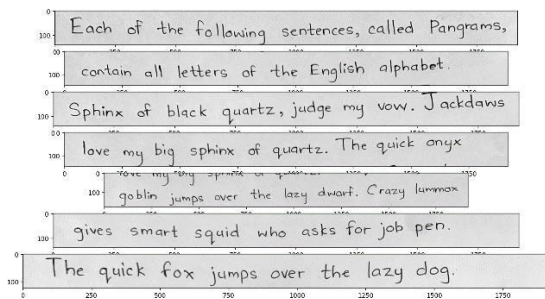 Each of the following sentences, called Pangrams,
contain all letters of the English alphabet.
Sphinx of black quartz, judge my vow. Jackdaws
love my big sphinx of quartz. The quick onyx
goblin jumps over the lazy dwarf. Crazy lummox
gives smart squid who asks for job pen.
The quick fox jumps over the lazy dog.